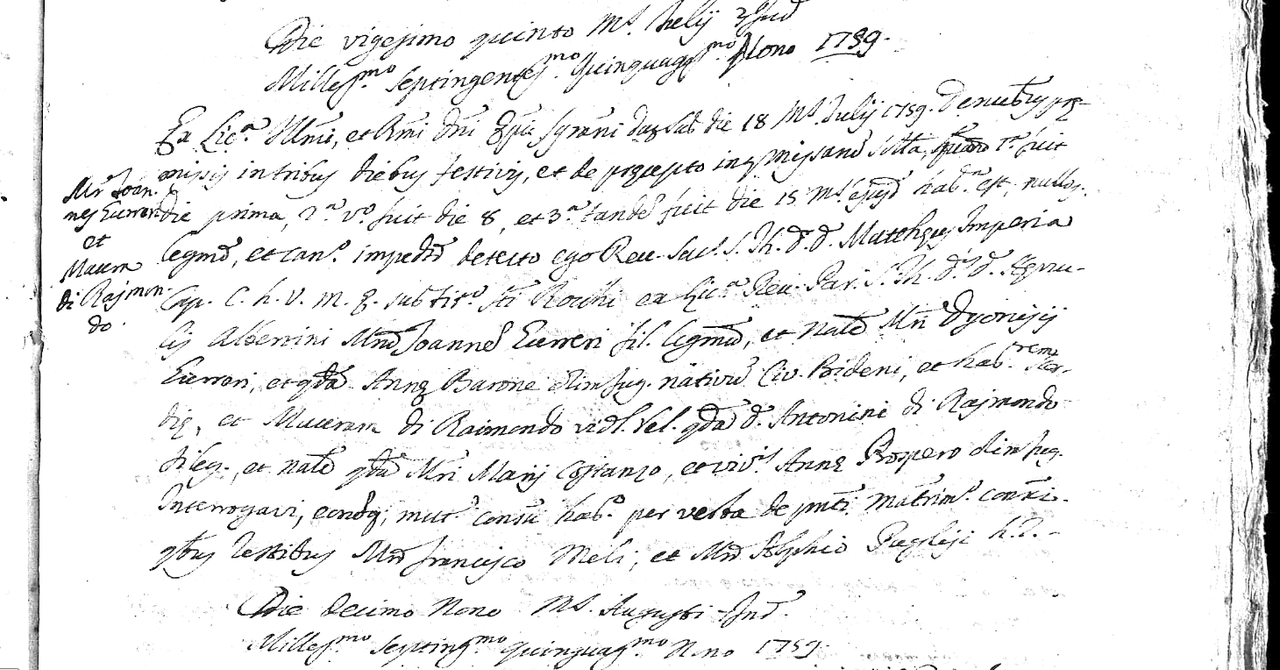 Die vigesimo quinto Ms. Julij Ind.
Millesmo Septingentesmo quinquagesmo Nono 1759.
Ex Lic.a Illmi, et Rmi Dni sub die 18 Ms. Julij 1759. Denuntijs prę-
missis in tribus diebus festivis, et de pręcepto inter missarum solta, quarum 1.a fuit
die prima, 2.a vo fuit die 8, et 3.a tandem fuit die 15 Ms. ejusd. hab.a est, nulloq.
legmo, et can.o impedto detecto ego Rev. Sac. S. Th. D. D. Mattheus Imperia
Cap. C. h. V. m. E. sub tit.o Sti Rochi ex Lic.a Rev. Par. S. Th. D. D. Igna-
tij Albertini Mrum Joannem Eurreri fil. legmum, et natlem Mri Dyonisij
Eurreri, et qdam Annę Barone olim jug. nativum Civ. Bideni, et hab.rem Ter-
dię, et Mauram di Raimondo vid. rel. qdam d. Antonini di Rajmondo
fil. leg., et natlem qdam Mri Marij Costanzo, et viv.s Annę Prospero olim jug.
Interrogavi, eorumq; mut.o consu hab.o per verba de pnti matrim.o conxi
pntbus testibus Mro Francisco Meli, et Mro Alphio Puglisi h. T.
Mr Joan-
nes Eurreri
et
Maura
di Rajmon-
do.
Die decimo Nono Ms. Augusti Ind.
Millesmo Septingmo quinquagmo Nono 1759.